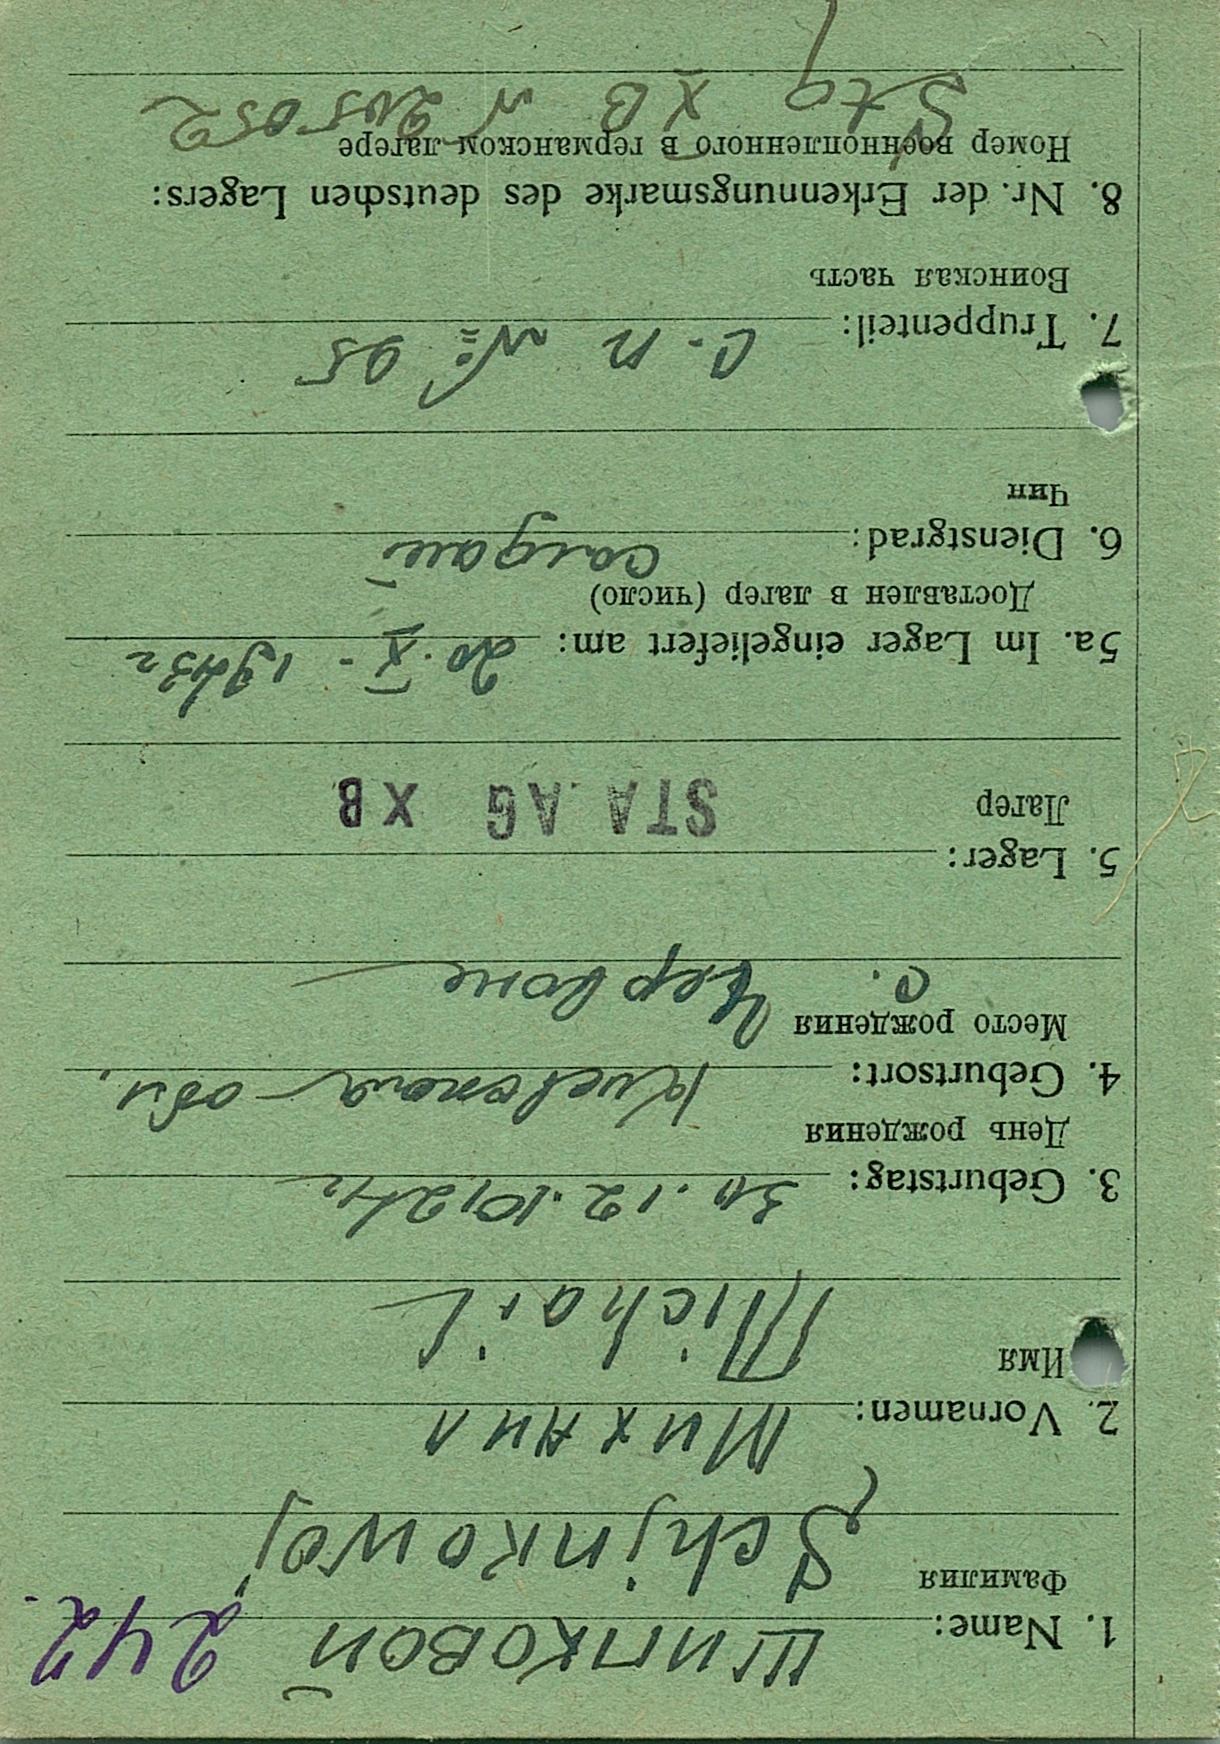 1. Name: Шипковой 242.
Фамилия
Schipkowoj
2. Vornamen: Михаил
Имя
Michail
3. Geburtstag:
День рождения
4. Geburtsort: обл.
Место рождения
с. Червоне
5. Lager:
Лагер STA AG XB
5a. Im Lager eingeliefert am: 20. X - 1943 г
Доставлен в лагер (число)
6. Dienstgrad: солдат
Чин
7. Truppenteil: С. п № 95
Воинская часть
8. Nr. der Erkennungsmarke des deutschen Lagers:
Номер военнопленного в германском лагере
Stg XB N 205052